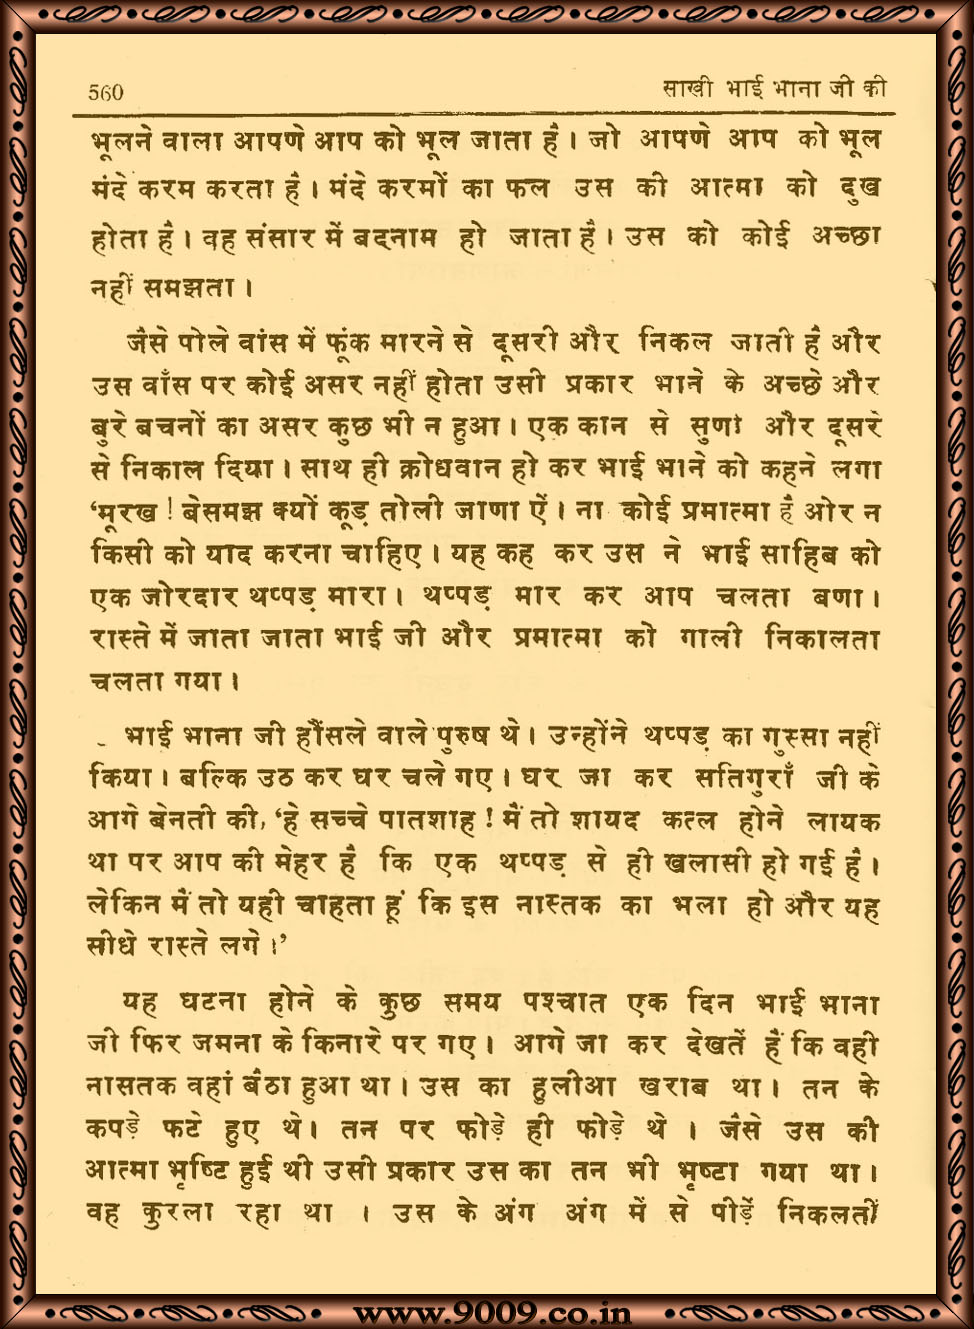 560
साखी भाई भाना जी की
भूलने वाला आपणे आप को भूल जाता है। जो आपणे आप को भूल
मंदे करम करता है। मंदे करमों का फल उस की आत्मा को दुख
होता है। वह संसार में बदनाम हो जाता है। उस को कोई अच्छा
नहीं समझता।
जैसे पोले वांस में फूंक मारने से दूसरी और निकल जाती है और
उस वाँस पर कोई असर नहीं होता उसी प्रकार भाने के अच्छे और
बुरे बचनों का असर कुछ भी न हुआ। एक कान से सुणी और दूसरे
से निकाल दिया। साथ ही क्रोधवान हो कर भाई भाने को कहने लगा
‘मूरख! बेसमझ क्यों कूड़ तोली जाणा ऐं। ना कोई प्रमात्मा है ओर न
किसी को याद करना चाहिए। यह कह कर उस ने भाई साहिब को
एक जोरदार थप्पड़ मारा। थप्पड़ मार कर आप चलता बणा।
रास्ते में जाता जाता भाई जी और प्रमात्मा को गाली निकालता
चलता गया।
भाई भाना जी हौंसले वाले पुरुष थे। उन्होंने थप्पड़ का गुस्सा नहीं
किया। बल्कि उठ कर घर चले गए। घर जा कर सतिगुराँ जी के
आगे बेनती की, ‘हे सच्चे पातशाह! मैं तो शायद कत्ल होने लायक
था पर आप की मेहर है कि एक थप्पड़ से ही खलासी हो गई है।
लेकिन मैं तो यही चाहता हूं कि इस नास्तक का भला हो और यह
सीधे रास्ते लगे।’
यह घटना होने के कुछ समय पश्चात एक दिन भाई भाना
जी फिर जमना के किनारे पर गए। आगे जा कर देखतें हैं कि वही
नासतक वहां बैठा हुआ था। उस का हुलीआ खराब था। तन के
कपड़े फटे हुए थे। तन पर फोड़े ही फोड़े थे । जैसे उस की
आत्मा भृष्टि हुई थी उसी प्रकार उस का तन भी भृष्टा गया था।
वह कुरला रहा था । उस के अंग अंग में से पीड़ें निकलतीं
www.9009.co.in